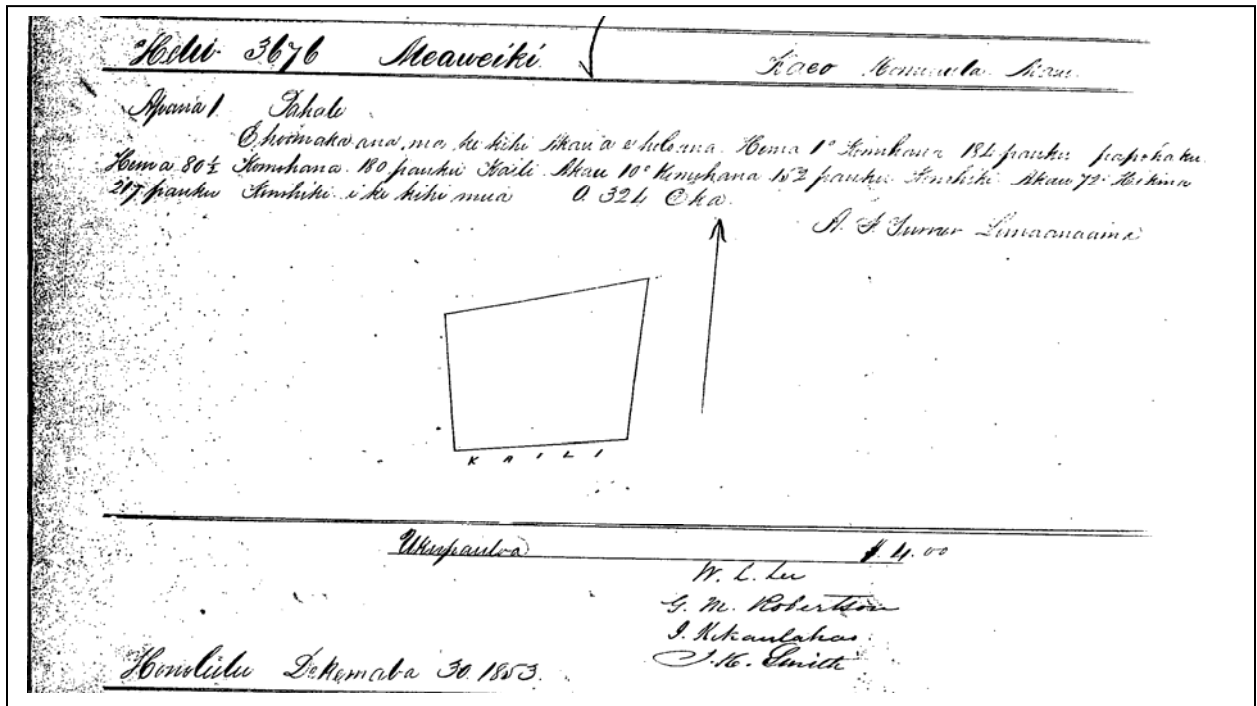 Helu 3676 Meaweiki. Kaeo Honuaula Maui.
Apana 1. Pahale
E hoomaka ana ma ke kihi Akau a e holo ana. Hema 1° Komohana 184 pauku papohaku
Hema 80½ Komohana 180 pauku Kaili Akau 10° Komohana 152 pauku Konohiki Akau 72° Hikina
217 pauku Konohiki i ke kihi mua 0. 324 Eka.
KAILI
Ukupauloa $ 4.00
W. L. Lee
G. M. Robertson
J. Kekaulahao.
J. K. Smith
Honolulu Dekemaba 30. 1853.